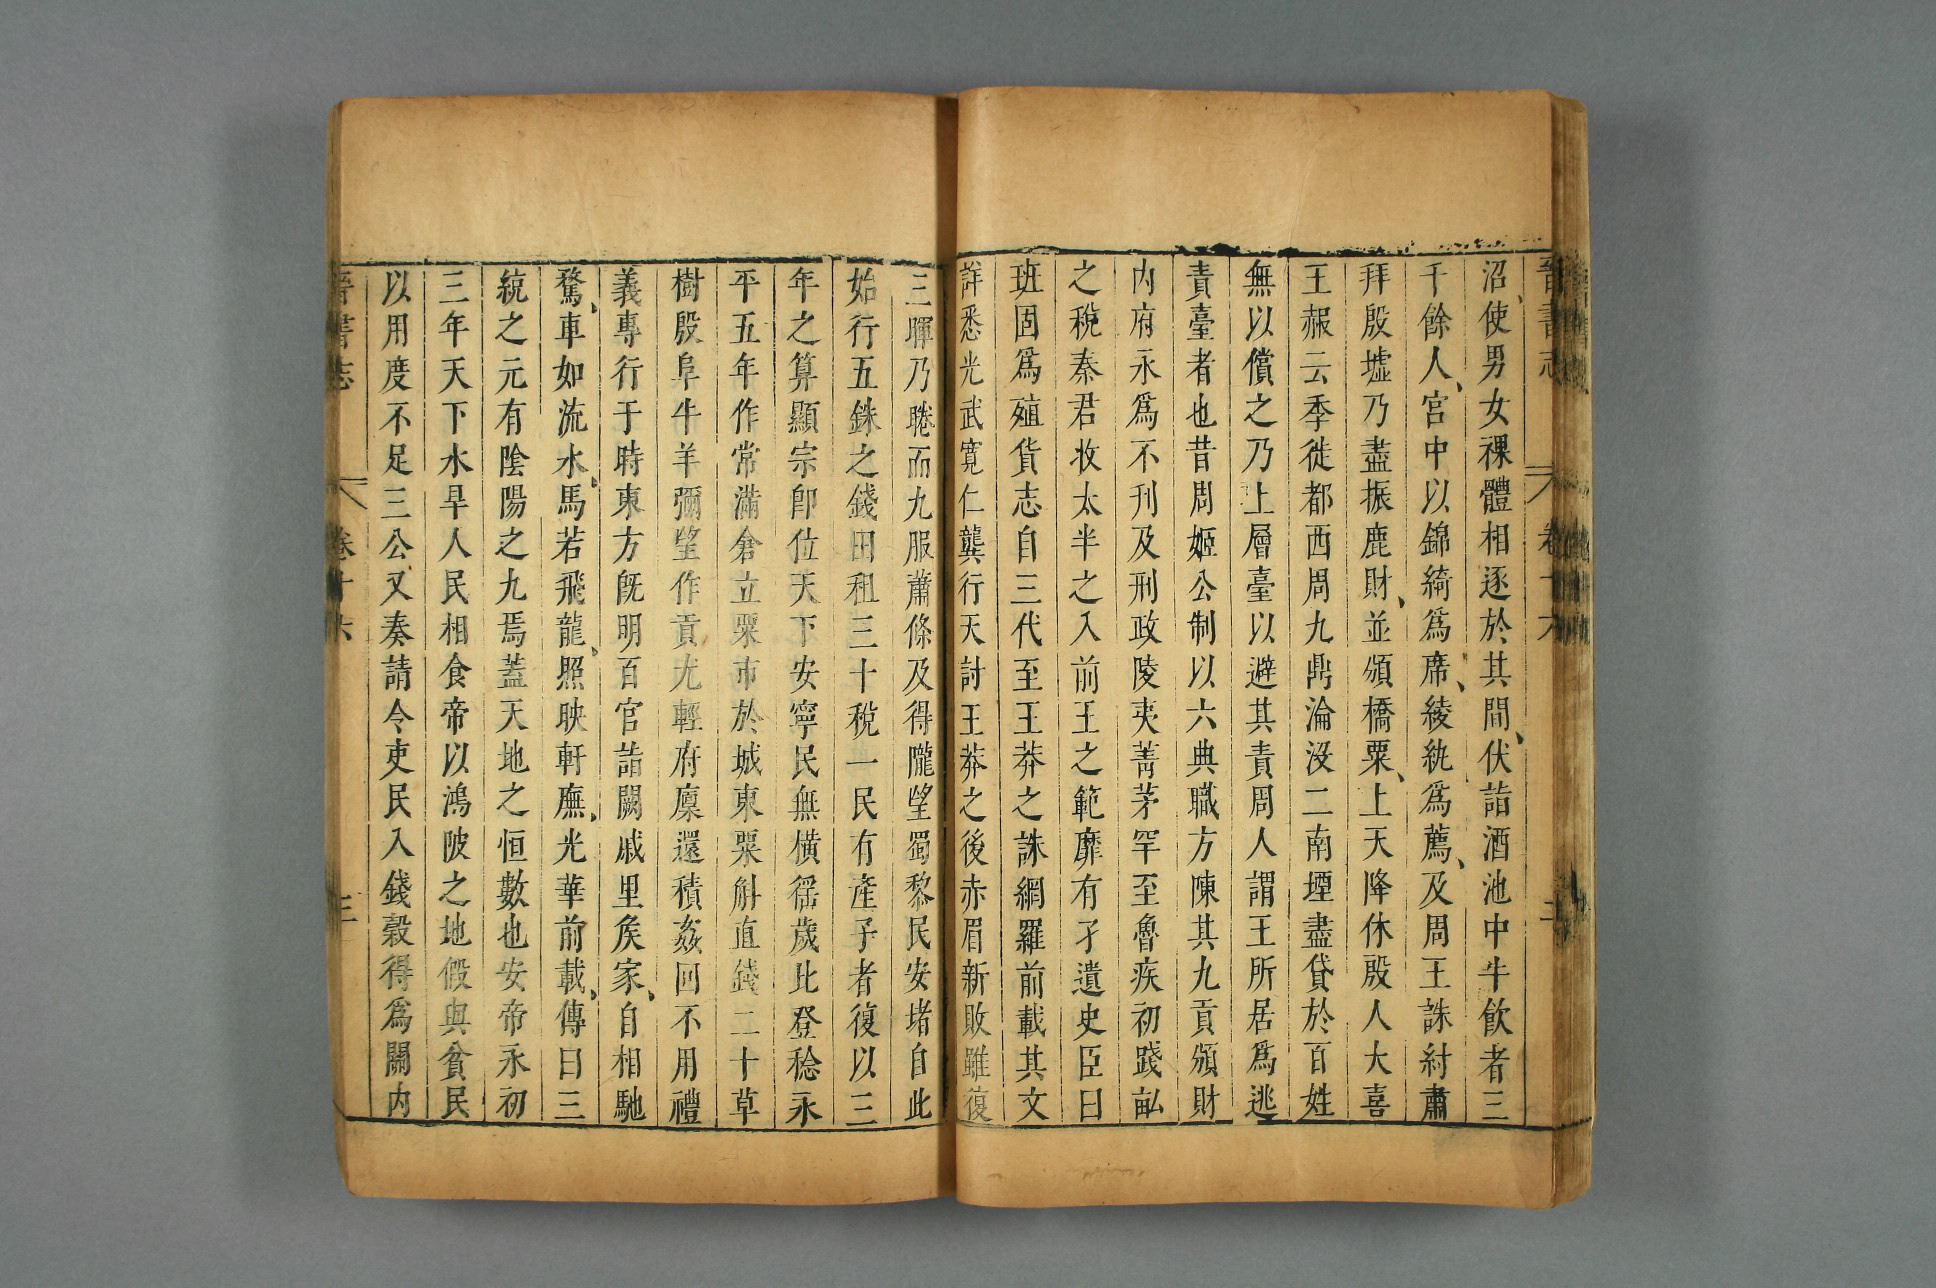 晉書志 卷十六 二
沼、使男女裸體相逐於其間、伏詣酒池中牛飲者三
千餘人、宮中以錦綺爲席、綾紈爲薦、及周王誅紂肅
拜殷墟乃盡振鹿財、並頒橋粟、上天降休殷人大喜
王赧云季徙都西周九鼎淪沒二南堙盡貸於百姓
無以償之乃上層臺以避其責周人謂王所居爲逃
責臺者也昔周姬公制以六典職方陳其九貢頒財
內府永爲不刊及刑政陵夷菁茅罕至魯疾初踐畝
之稅秦君收太半之入前王之範靡有孑遺史臣曰
班固爲殖貨志自三代至王莽之誅網羅前載其文
詳悉光武寬仁龔行天討王莽之後赤眉新敗雖復
三暉乃睠而九服蕭條及得隴望蜀黎民安堵自此
始行五銖之錢田租三十稅一民有產子者復以三
年之算顯宗卽位天下安寧民無橫徭歲比登稔永
平五年作常滿倉立粟市於城東粟斛直錢二十草
樹殷阜牛羊彌望作貢尤輕府廩還積姦回不用禮
義專行于時東方旣明百官詣闕戚里矦家、自相馳
騖、車如流水、馬若飛龍、照映軒廡、光華前載、傳曰三
統之元有陰陽之九焉蓋天地之恒數也安帝永初
三年天下水旱人民相食帝以鴻陂之地假與貧民
以用度不足三公又奏請令吏民入錢穀得爲關內
晉書志 卷十六 三